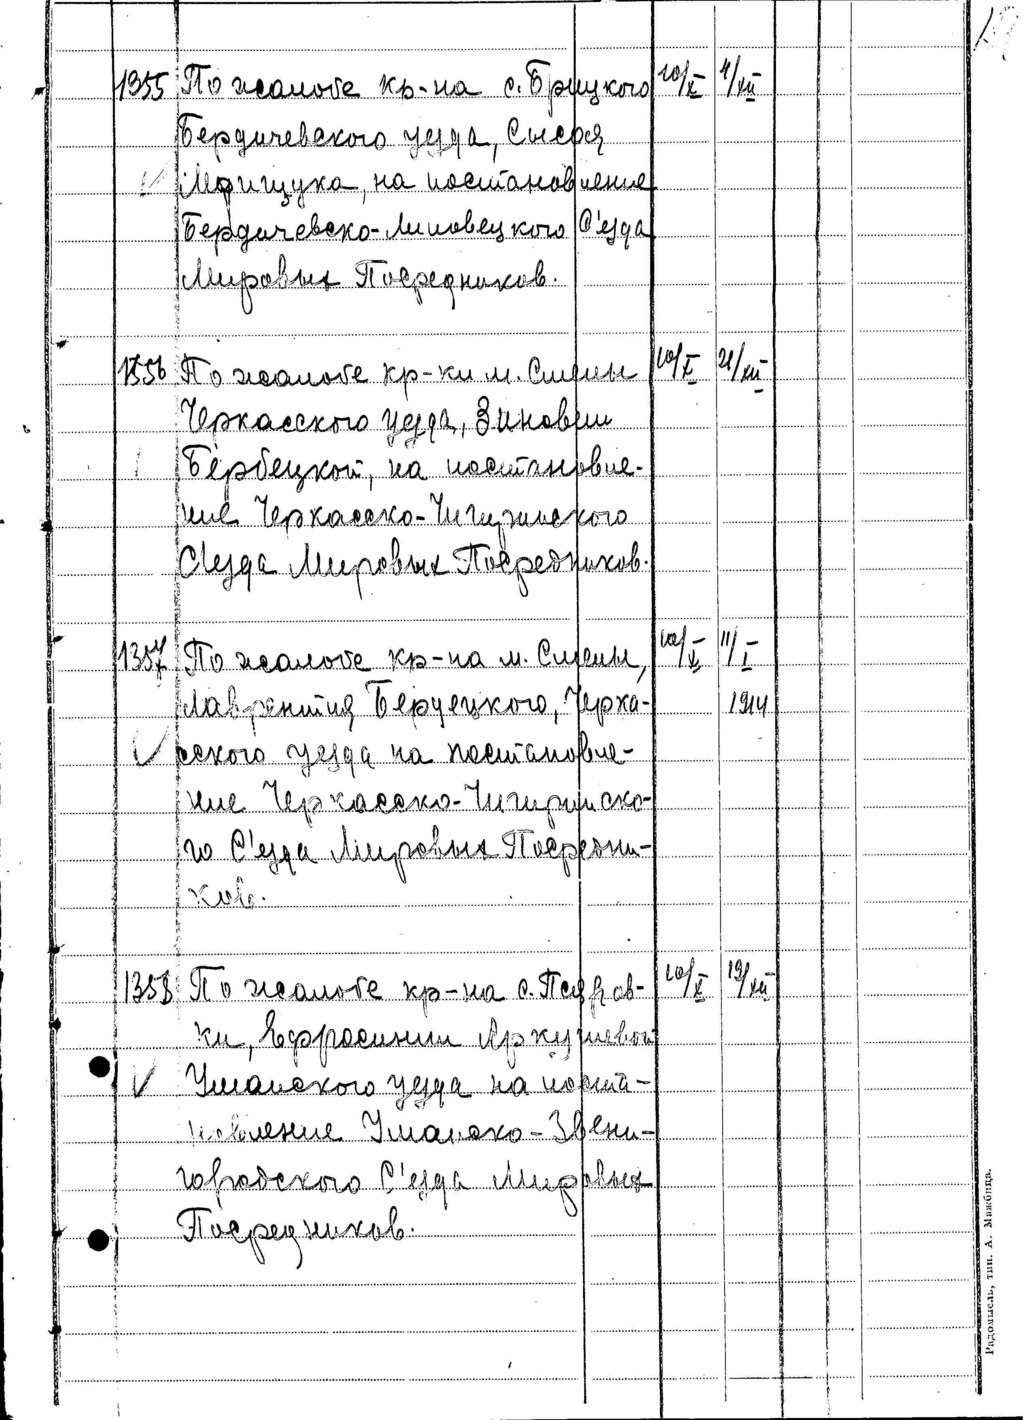 1355 По жалобе кр-на с. Брицкого 10/X 4/XII
Бердичевского уезда, Сысоя
Мфищука, на постановление
Бердичевско-Липовецкого С'езда
Мировых Посредников.
1356 По жалобе кр-ки м. Смелы 10/X 21/XII
Черкасского уезда, Зиновии
Бербецкой, на постановле-
ние Черкасско-Чигиринского
С'езда Мировых Посредников.
1357 По жалобе кр-на м. Смелы, 10/X 11/I
Лаврентия Бердецкого, Черка- 1914
сского уезда на постановле-
ние Черкасско-Чигиринско-
го С'езда Мировых Посредни-
ков.
1358 По жалобе кр-на с. 10/X 19/XII
ки, Ефросинии Аркушевой
Уманского уезда на поста-
новление Уманско-Звени-
городского С'езда Мировых
Посредников.
Радомысль, тип. А. Мажбица.